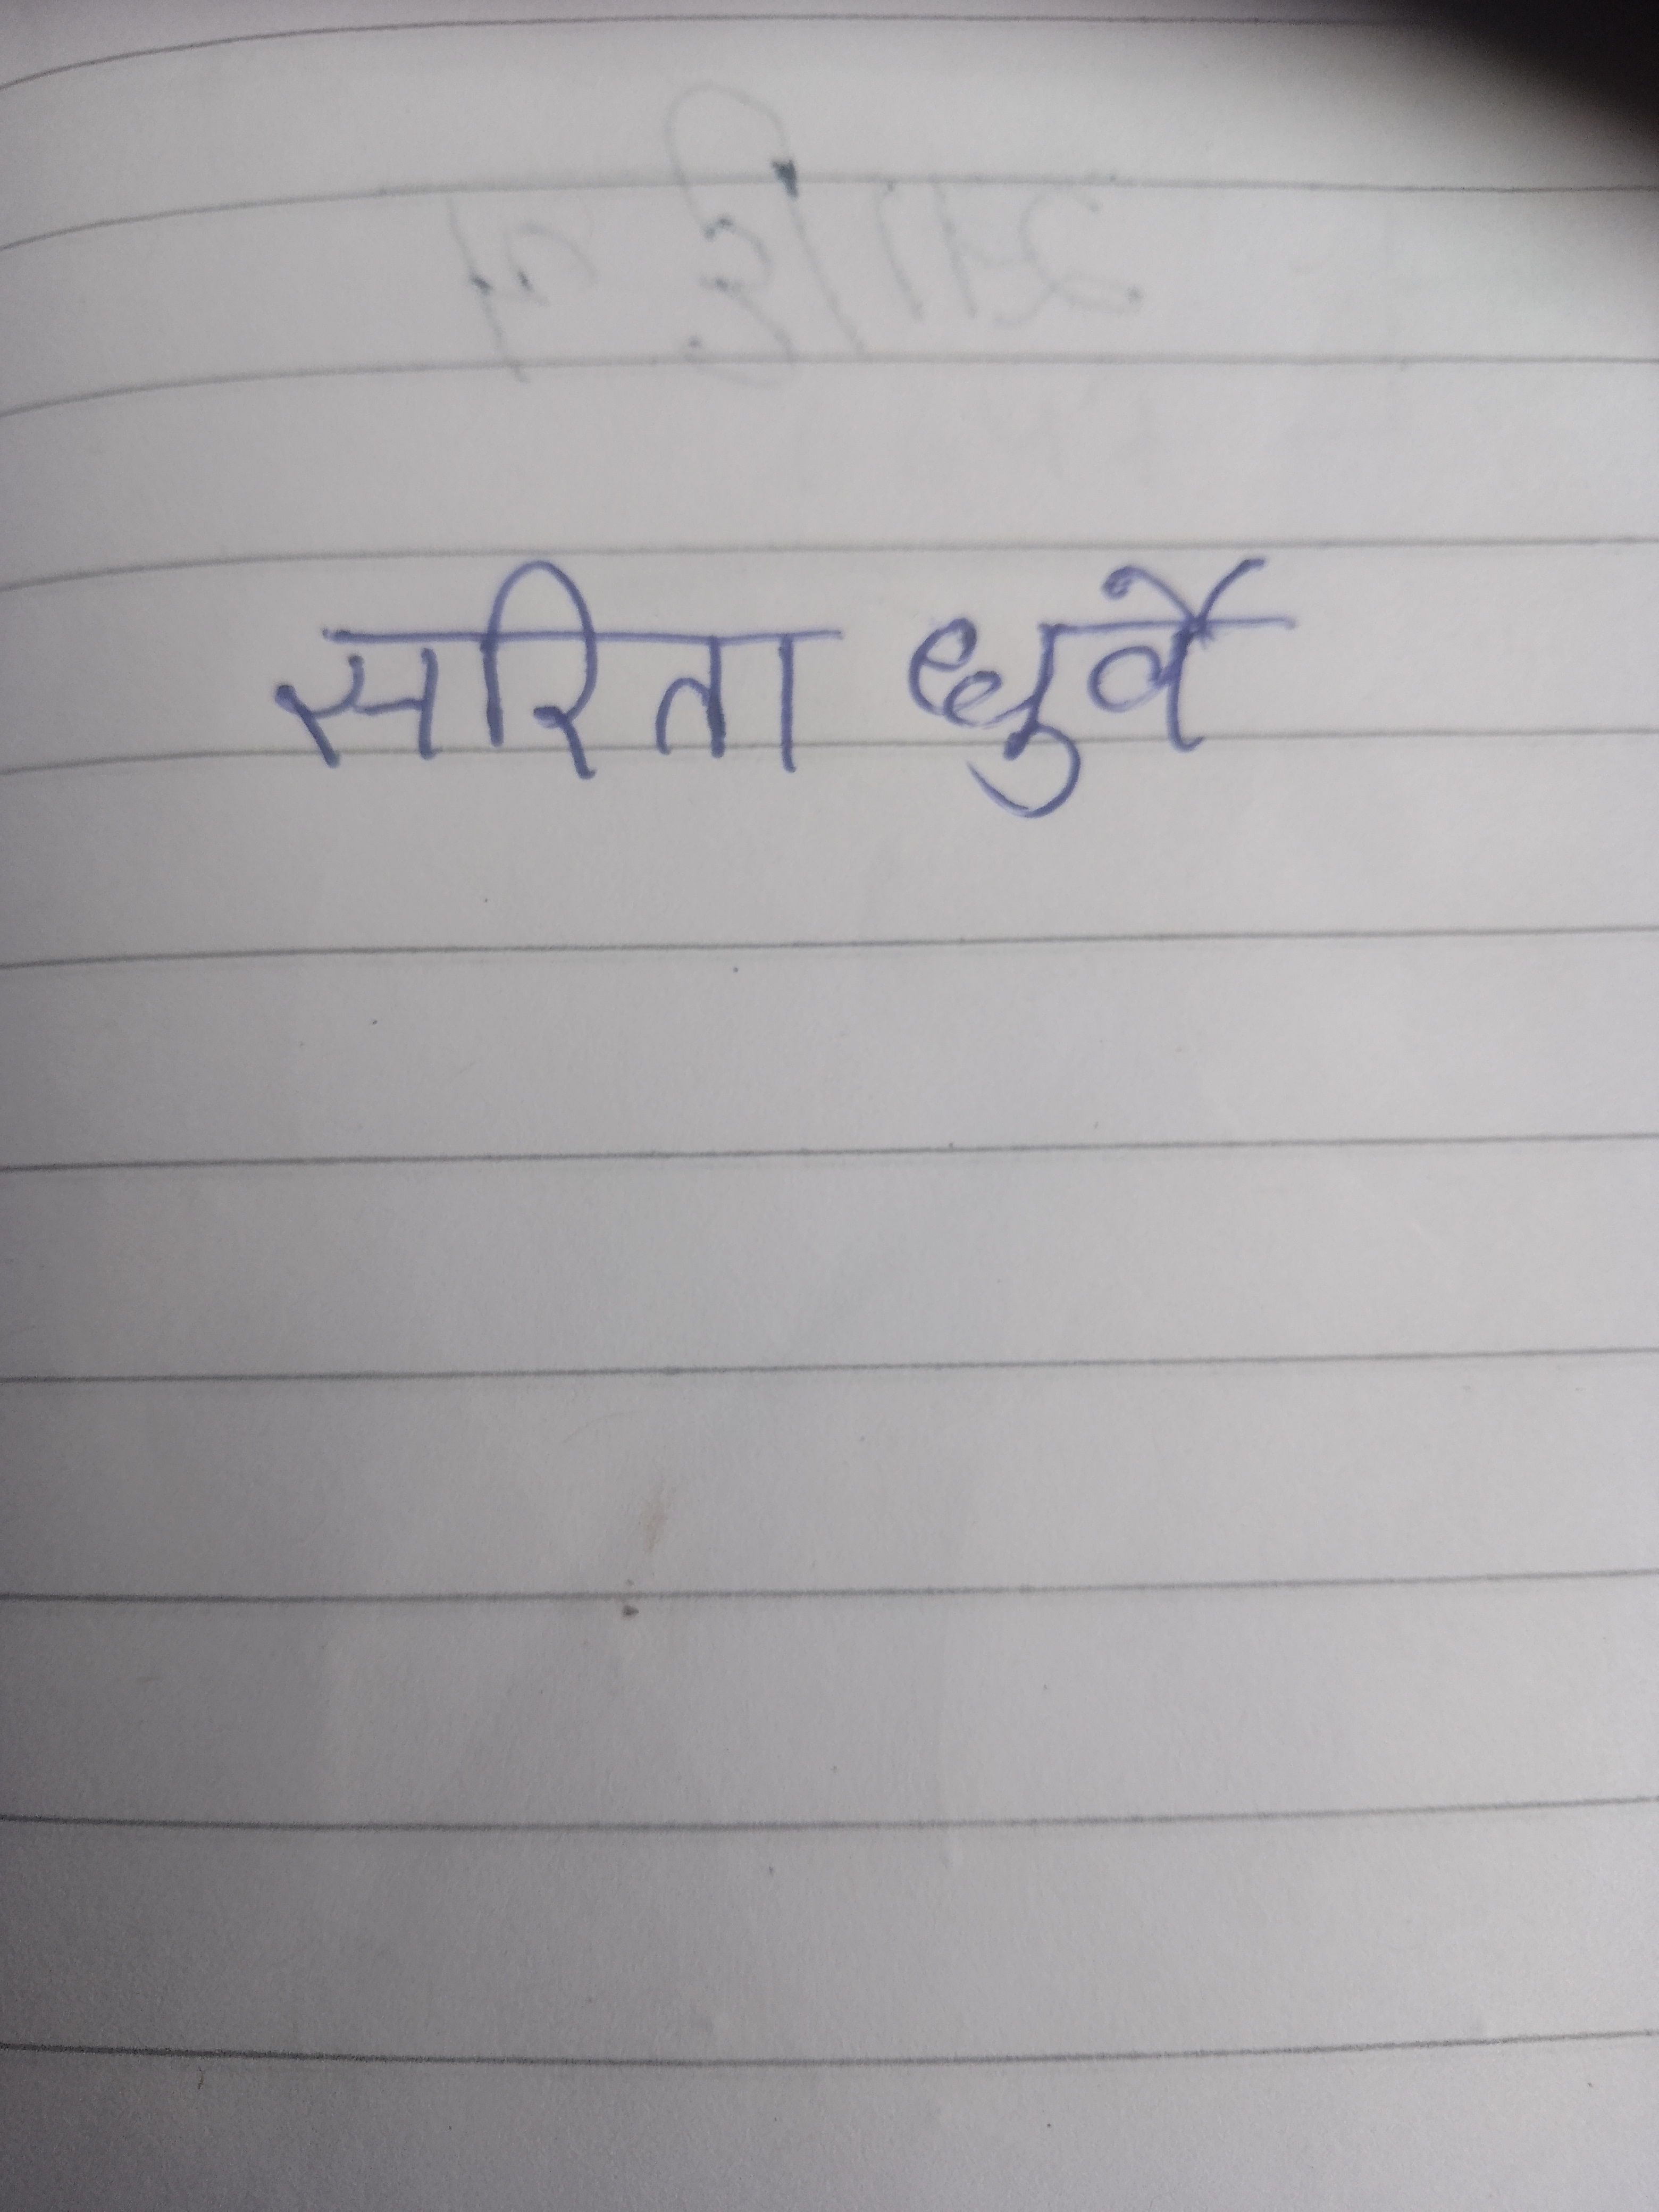 सरिता धुर्वे